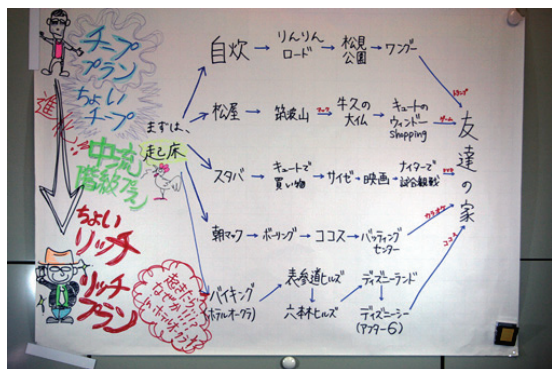 チープ
プラン
ちょい
チープ
進化!!
中流
階級プラン
ちょい
リッチ
リッチ
プラン
まずは、
起床
自炊
りんりん
ロード
松見
公園
ワンダー
松屋
筑波山
牛久の
大仏
キュートの
ウィンドー
shopping
スタバ
キュートで
買い物
サイゼ
映画
ナイターで
試合観戦
朝マック
ボーリング
ココス
バッティング
センター
バイキング
(ホテルオークラ)
表参道ヒルズ
六本木ヒルズ
ディズニーランド
ディズニーシー
(アフター6)
起きたら
なぜか
inホテルオークラ!!
トランプ
ゲーム
カラオケ
ココス
友達の家